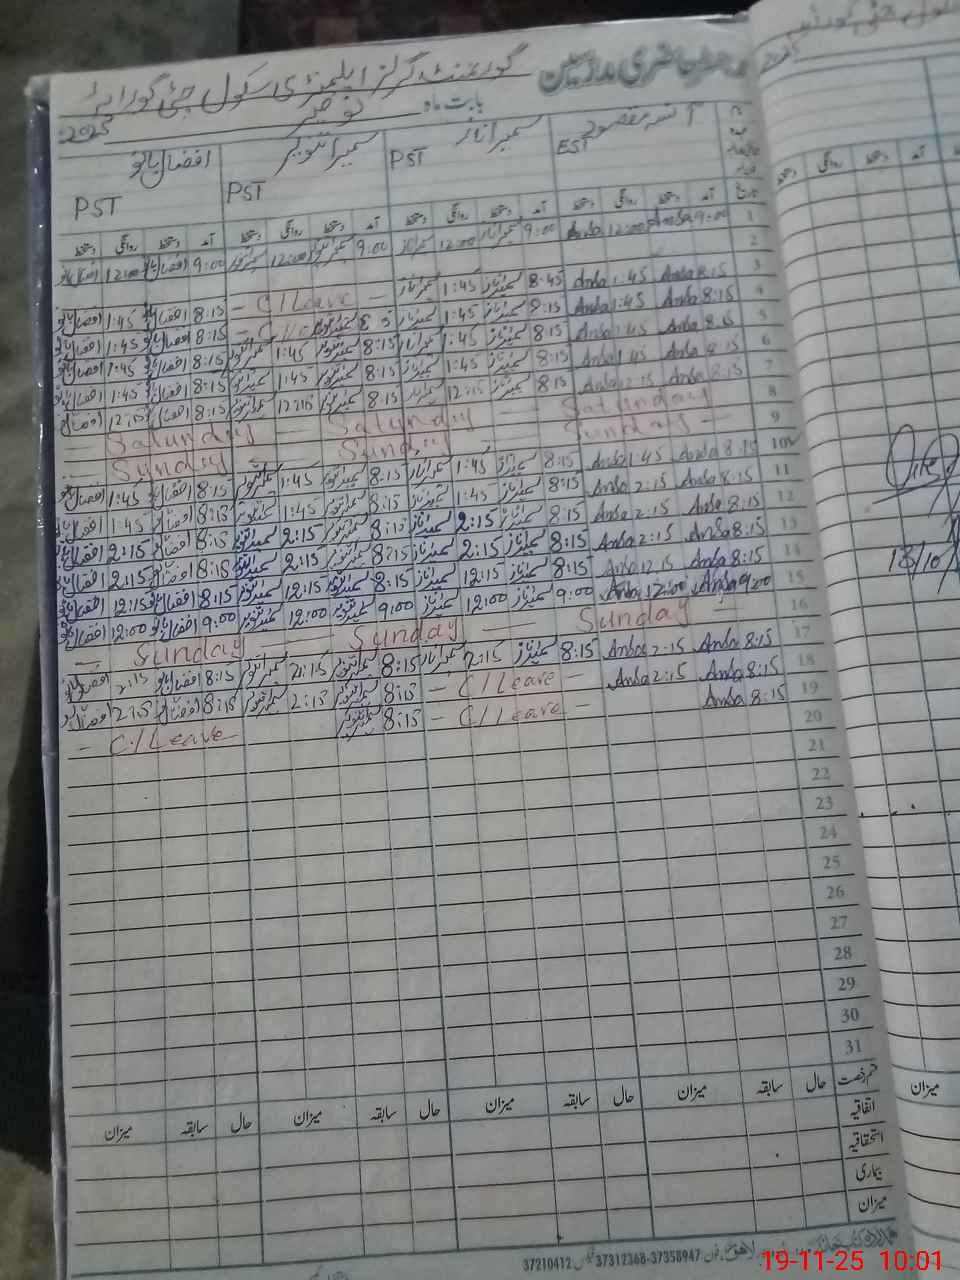 رجسٹر حاضری مدرسین گورنمنٹ گرلز ایلیمنٹری سکول
بابت ماہ نومبر 2025
آنسہ مقصود سمیرا ناز سمیرا تنویر افضال بانو
EST PST PST PST
تاریخ آمد دستخط روانگی دستخط آمد دستخط روانگی دستخط آمد دستخط روانگی دستخط آمد دستخط روانگی دستخط
1 9:00 Ansa 12:00 Ansa 9:00 سمیرا ناز 12:00 سمیرا ناز 9:00 سمیرا تنویر 12:00 سمیرا تنویر 9:00 افضال بانو 12:00 افضال بانو
2
3 8:15 Ansa 1:45 Ansa 8:45 سمیرا ناز 1:45 سمیرا ناز - C/Leave - 8:15 افضال بانو 1:45 افضال بانو
4 8:15 Ansa 1:45 Ansa 8:15 سمیرا ناز 1:45 سمیرا ناز 8:15 افضال بانو 1:45 افضال بانو
5 8:15 Ansa 1:45 Ansa 8:15 سمیرا ناز 1:45 سمیرا ناز 8:15 سمیرا تنویر 1:45 سمیرا تنویر 8:15 افضال بانو 1:45 افضال بانو
6 8:15 Ansa 1:45 Ansa 8:15 سمیرا ناز 1:45 سمیرا ناز 8:15 سمیرا تنویر 1:45 سمیرا تنویر 8:15 افضال بانو 1:45 افضال بانو
7 8:15 Ansa 12:15 Ansa 8:15 سمیرا ناز 12:15 سمیرا ناز 8:15 سمیرا تنویر 12:15 سمیرا تنویر 8:15 افضال بانو 12:15 افضال بانو
8 Saturday Saturday Saturday
9 Sunday Sunday Sunday
10 8:15 Ansa 1:45 Ansa 8:15 سمیرا ناز 1:45 سمیرا ناز 8:15 سمیرا تنویر 1:45 سمیرا تنویر 8:15 افضال بانو 1:45 افضال بانو
11 8:15 Ansa 2:15 Ansa 8:15 سمیرا ناز 1:45 سمیرا ناز 8:15 سمیرا تنویر 1:45 سمیرا تنویر 8:15 افضال بانو 1:45 افضال بانو
12 8:15 Ansa 2:15 Ansa 8:15 سمیرا ناز 2:15 سمیرا ناز 8:15 سمیرا تنویر 2:15 سمیرا تنویر 8:15 افضال بانو 2:15 افضال بانو
13 8:15 Ansa 2:15 Ansa 8:15 سمیرا ناز 2:15 سمیرا ناز 8:15 سمیرا تنویر 2:15 سمیرا تنویر 8:15 افضال بانو 2:15 افضال بانو
14 8:15 Ansa 12:15 Ansa 8:15 سمیرا ناز 12:15 سمیرا ناز 8:15 سمیرا تنویر 12:15 سمیرا تنویر 8:15 افضال بانو 12:15 افضال بانو
15 9:00 Ansa 12:00 Ansa 9:00 سمیرا ناز 12:00 سمیرا ناز 9:00 سمیرا تنویر 12:00 سمیرا تنویر 9:00 افضال بانو 12:00 افضال بانو
16 Sunday Sunday Sunday
17 8:15 Ansa 2:15 Ansa 8:15 سمیرا ناز 2:15 سمیرا ناز 8:15 سمیرا تنویر 2:15 سمیرا تنویر 8:15 افضال بانو 2:15 افضال بانو
18 8:15 Ansa 2:15 Ansa - C/Leave - 8:15 سمیرا تنویر 2:15 سمیرا تنویر 8:15 افضال بانو 2:15 افضال بانو
19 8:15 Ansa - C/Leave - 8:15 سمیرا تنویر - C/Leave
20
21
22
23
24
25
26
27
28
29
30
31
قسم رخصت حال سابقہ میزان حال سابقہ میزان حال سابقہ میزان حال سابقہ میزان
اتفاقیہ
استحقاقیہ
بیماری
میزان
لاہور فون: 37358947-37312368 فیکس 37210412
آمد دستخط روانگی دستخط
13/10
میزان
19-11-25 10:01